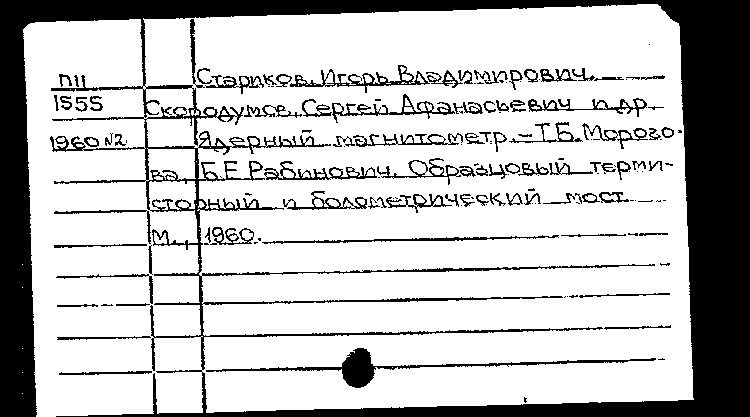 П11 Стариков, Игорь Владимирович.
1555 Скородумов, Сергей Афанасьевич и др.
1960 №2 Ядерный магнитометр. – Т.Б. Морозо-
ва, Б.Е. Рабинович. Образцовый терми-
сторный и болометрический мост.
М., 1960.